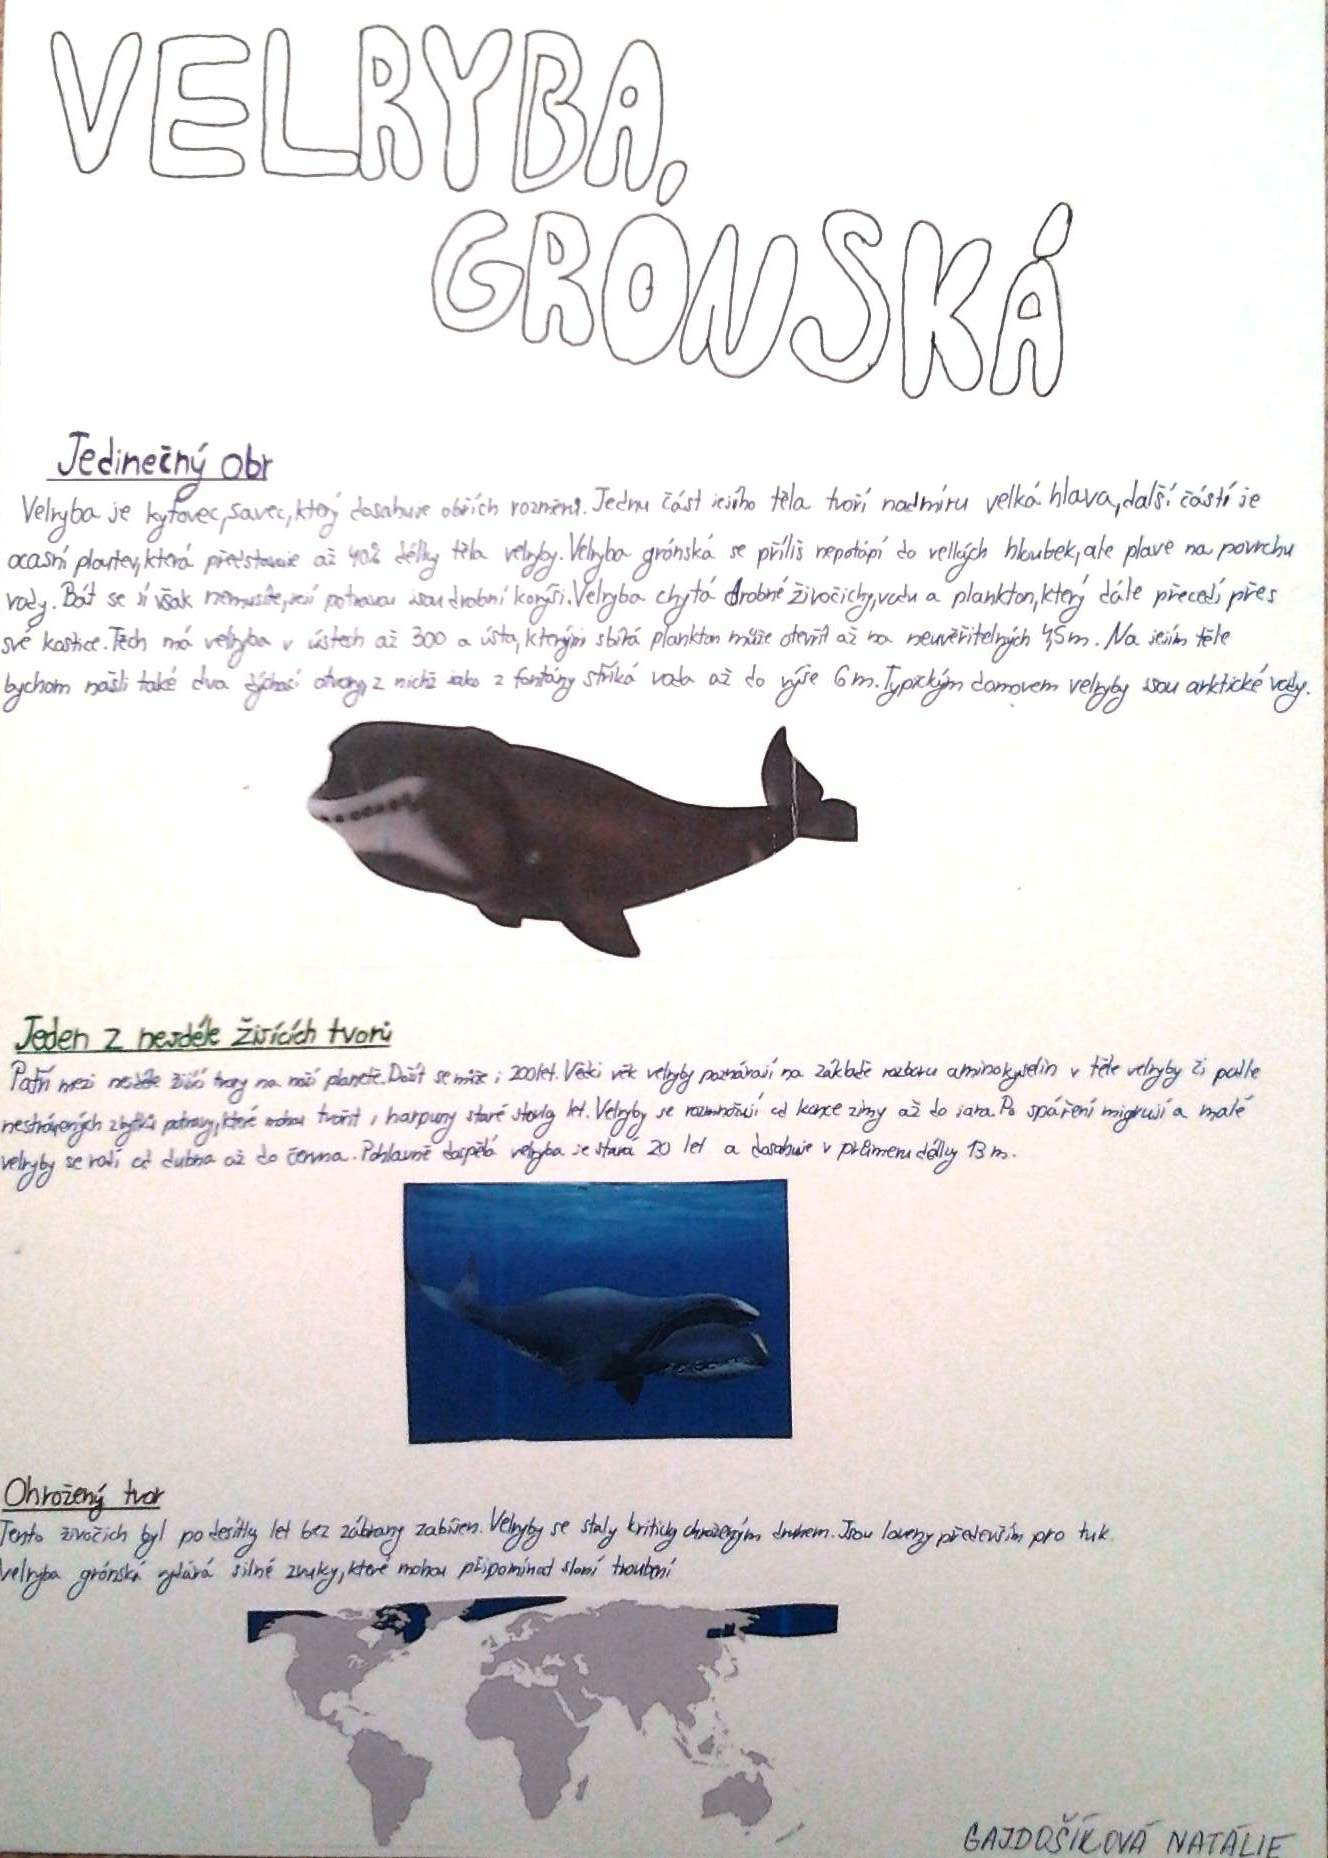 VELRYBA,
GRÓNSKÁ
Jedinečný obr
Velryba je kytovec, savec, který dosahuje obřích rozměrů. Jednu část jejího těla tvoří nadmíru velká hlava, další částí je
ocasní ploutev, která představuje až 40% délky těla velryby. Velryba grónská se příliš nepotápí do velkých hloubek, ale plave na povrchu
vody. Bát se jí však nemusíte, její potravou jsou drobní korýši. Velryba chytá drobné živočichy, vodu a plankton, který dále přecedí přes
své kostice. Těch má velryba v ústech až 300 a ústa, kterým sbírá plankton může otevřít až na neuvěřitelných 4,5m. Na jejím těle
bychom našli také dva dýchací otvory, z nichž jako z fontány stříká voda až do výše 6m. Typickým domovem velryby jsou arktické vody.
Jeden z nejdéle žijících tvorů
Patří mezi nejdéle žijící tvory na naší planetě. Dožít se může i 200let. Vědci věk velryby poznávají na základě rozboru aminokyselin v těle velryby či podle
nestrávených zbytků potravy, které mohou tvořit i harpuny staré stovky let. Velryby se rozmnožují od konce zimy až do jara. Po spáření migrují a malé
velryby se rodí od dubna až do června. Pohlavně dospělá velryba je stará 20 let a dosahuje v průměru délky 13m.
Ohrožený tvor
Tento živočich byl po desítky let bez zábrany zabíjen. Velryby se staly kriticky ohroženým druhem. Jsou loveny především pro tuk.
Velryba grónská vydává silné zvuky, které mohou připomínat sloní troubení
GAJDOŠÍKOVÁ NATÁLIE